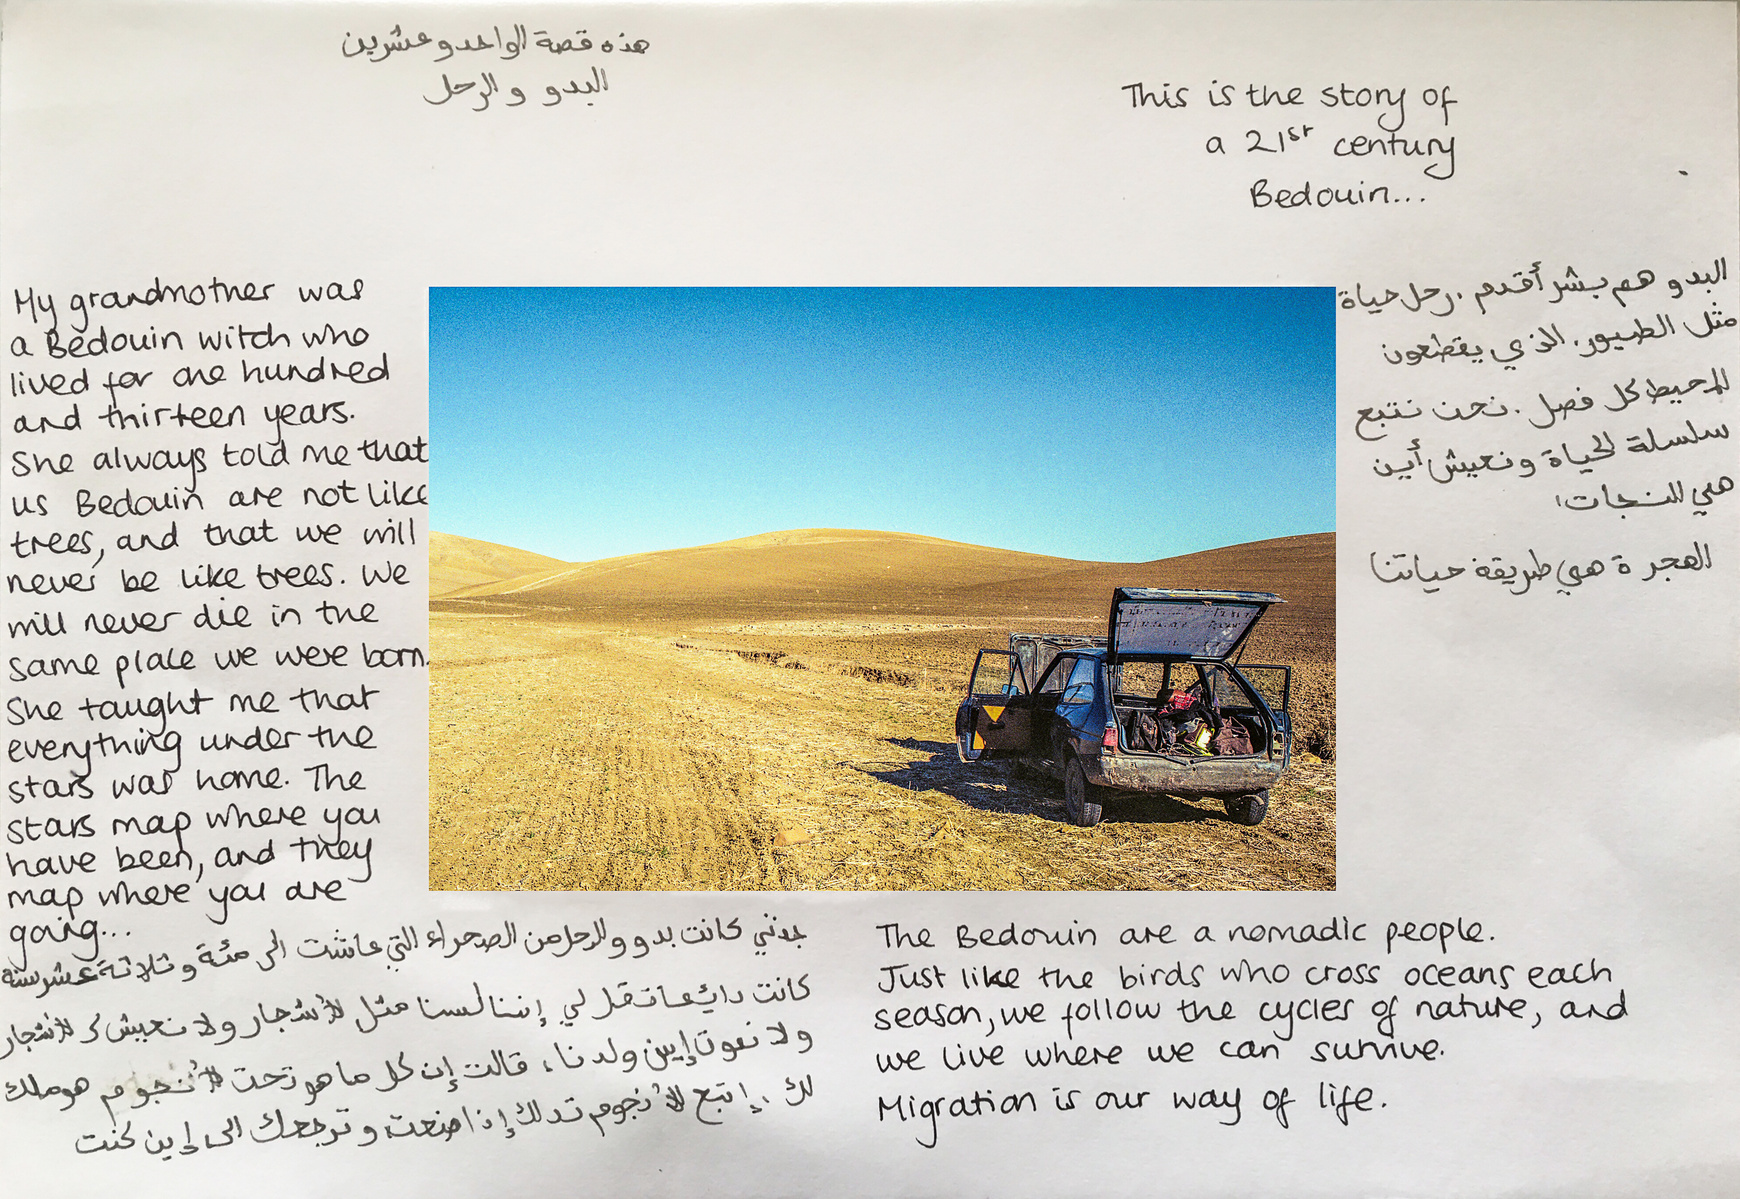 هذه قصة الواحد و عشرين
البدو و الرحل
This is the story of
a 21st century
Bedouin...
My grandmother was
a Bedouin witch who
lived for one hundred
and thirteen years.
She always told me that
us Bedouin are not like
trees, and that we will
never be like trees. We
will never die in the
same place we were born.
She taught me that
everything under the
stars was home. The
stars map where you
have been, and they
map where you are
going...
البدو هم بشر أقدم . رحل حياة
مثل الطيور. الذي يقطعون
المحيط كل فصل . نحن نتبع
سلسلة الحياة و نعيش أين
هي النجات
الهجرة هي طريقة حياتنا
جدتي كانت بدو و الرحل من الصحراء التي عاشت الى مئة و ثلاثة عشر سنة
كانت تقل لي إننا لسنا مثل الأشجار و لا نعيش ك الأشجار
و لا نموت إين ولدنا ، قالت إن كل ما هو تحت النجوم هو ملك
لك . إتبع النجوم تدلك إذا ضعت و ترجعك الى إين كنت
The Bedouin are a nomadic people.
Just like the birds who cross oceans each
season, we follow the cycles of nature, and
we live where we can survive.
Migration is our way of life.